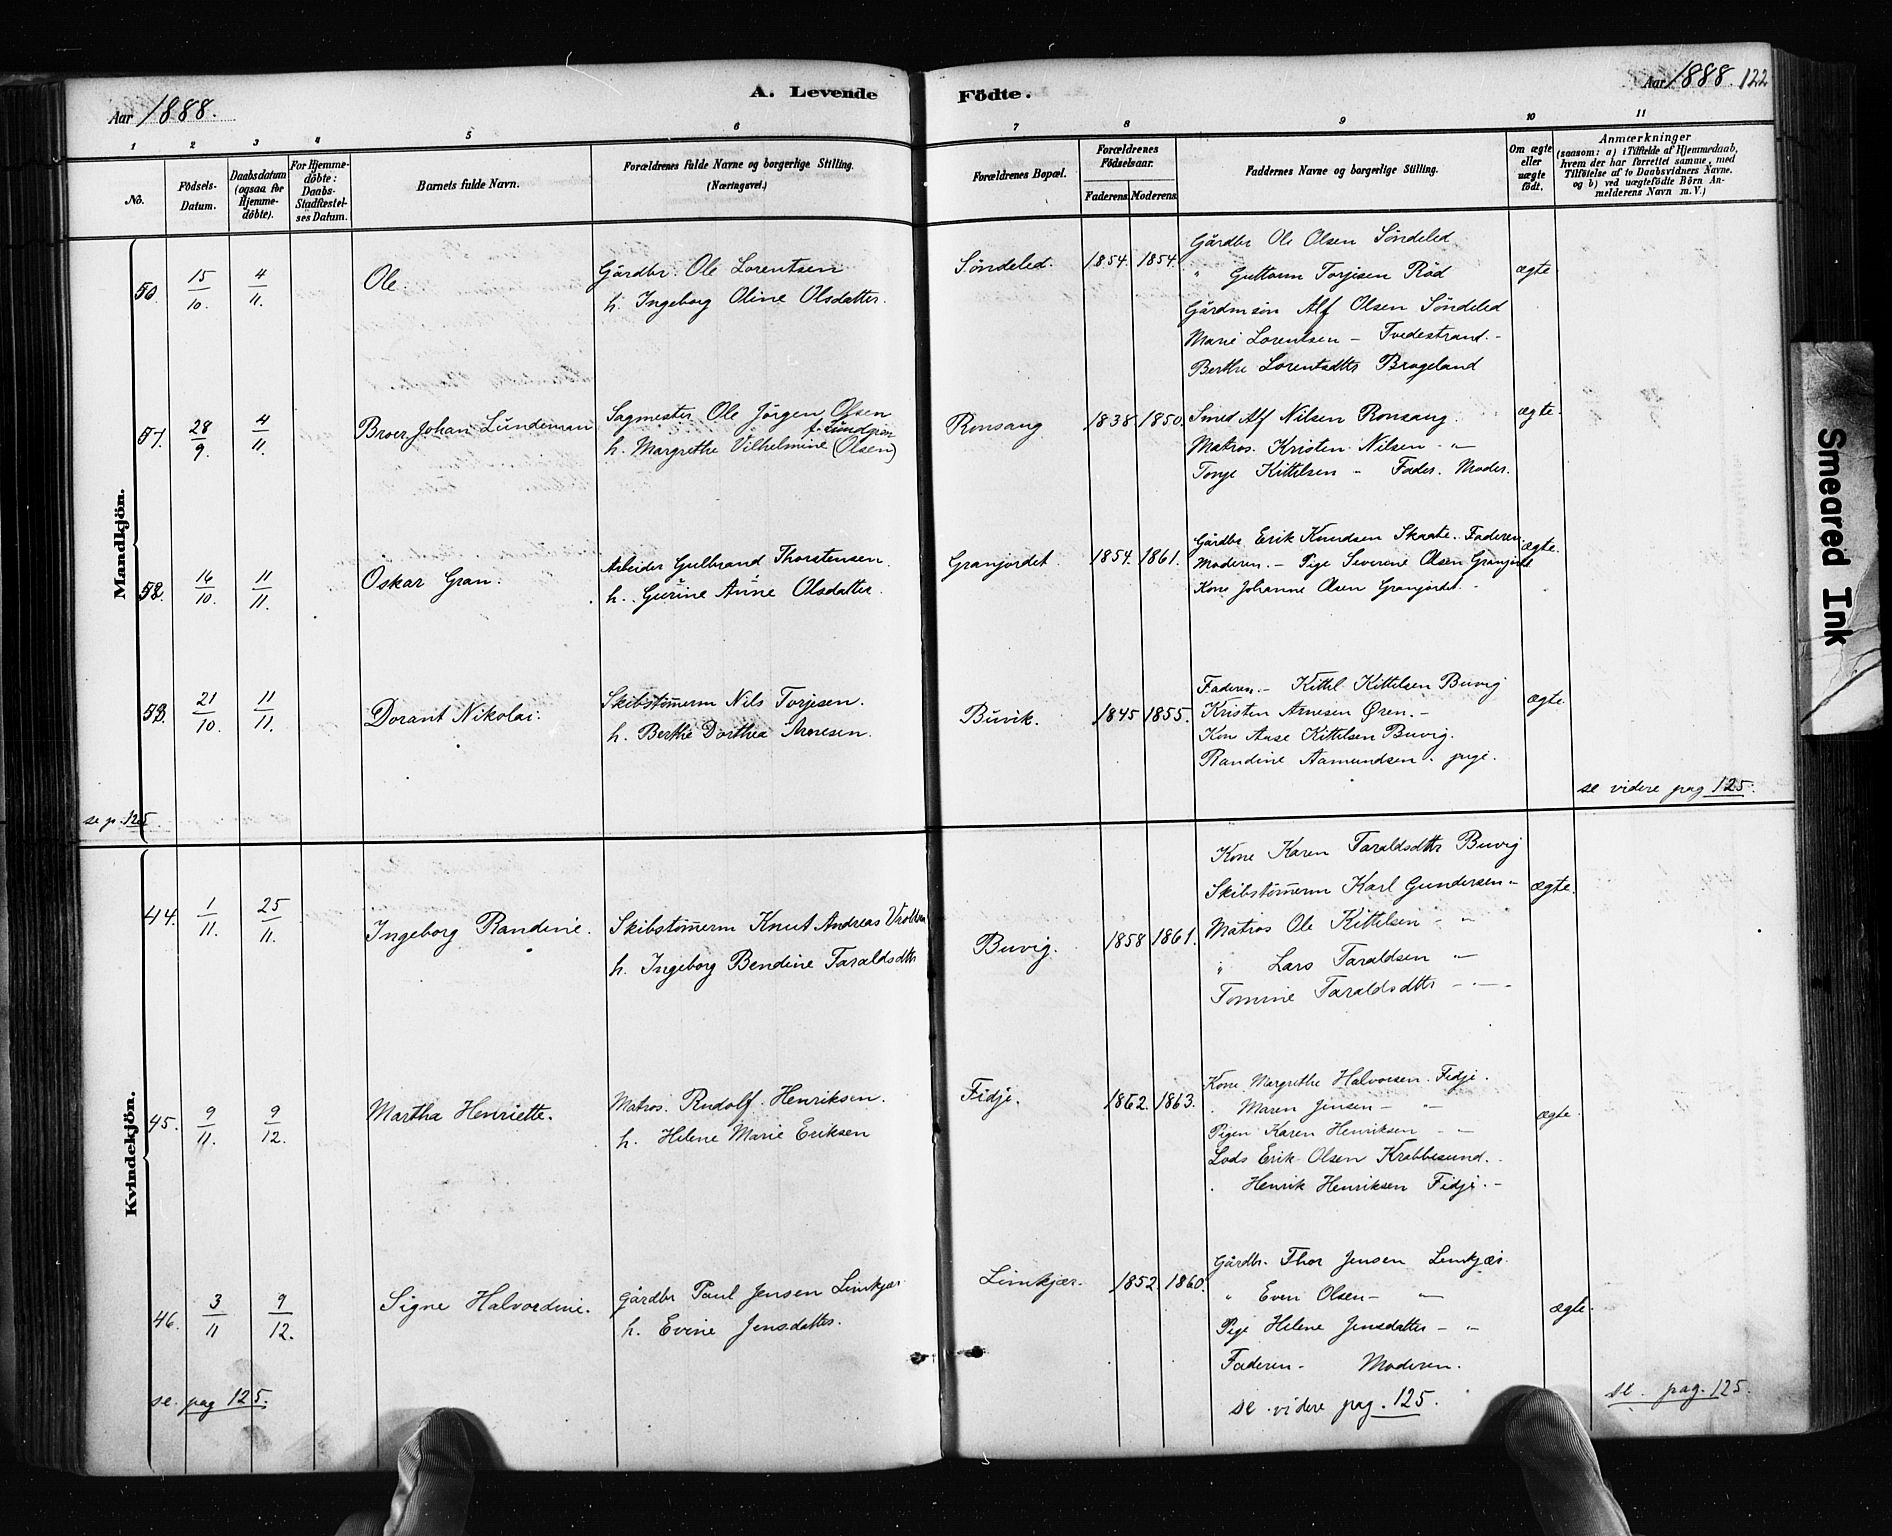 Aar 1888.
A. Levende
Födte.
Aar 1888. 122
1 2 3 4 5 6 7 8 9 10 11
No.
Födsels-Datum.
Daabsdatum (ogsaa for Hjemme-döbte).
For Hjemme-döbte: Daabs-Stadfæstel-ses Datum.
Barnets fulde Navn.
Forældrenes fulde Navne og borgerlige Stilling.
(Næringsvei.)
Forældrenes Bopæl.
Forældrenes Födselsaar.
Faderens. Moderens.
Faddernes Navne og borgerlige Stilling.
Om ægte eller uægte födt.
Anmærkninger
(saasom: a) i Tilfælde af Hjemmedaab,
hvem der har forrettet samme, med
Tilföielse af to Daabsvidners Navne.
og b) ved uægtefödte Börn An-
melderens Navn m. V.)
Mandkjön.
50. 15/10. 4/11. Ole.
Gårdbr. Ole Lorentsen
h. Ingeborg Oline Olsdatter.
Søndeled. 1854. 1854.
Gårdbr Ole Olsen Søndeled
" Guttorm Torjisen Rød
Gårdmsøn Alf Olsen Søndeled
Marie Lorentsen – Tvedestrand. -
Berthe Lorentsdttr Brogeland
ægte
51. 28/9. 4/11. Broer Johan Lundeman
Sagmester Ole Jörgen Olsen
f. Lundgren
h. Margrethe Vilhelmine (Olsen)
Ronsang 1838 1850.
Smed Alf Nilsen Ronsang.
Matros. Kristen Nilsen - "
Tonje Kittelsen " Fader. Moder.
ægte.
52. 16/10. 11/11. Oskar Gran.
Arbeider Gulbrand Thorstensen.
h. Gurine Anne Olsdatter.
Granjordet. 1854. 1861.
Gårdbr Erik Knudsen Skaate. Faderen,
Moderen. – Pige Severene Olsen Granjordt
Kone Johanne Olsen Granjordet. -
ægte.
53. 21/10. 11/11. Dorant Nikolai.
Skibstømerm Nils Torjesen.
h. Berthe Dorthea Arnesen.
Buvik. 1845 1855.
Faderen. – Kittil Kittilsen Buvig
Kristen Arnesen Øren. –
Kone Aase Kittelsen Buvig.
Randine Aamundsen. pige.
ægte.
se videre pag 125.
se p. 125
Kvindekjön.
44. 1/11. 25/11. Ingeborg Randine.
Skibstømerm Knut Andreas
h. Ingeborg Bendine Taraldsdttr
Buvig. 1858 1861.
Kone Karen Taraldsdttr Buvig
Skibstømerm Karl Gundersen "
Matros Ole Kittelsen - "
" Lars Taraldsen "
Tomine Taraldsdttr - " -
ægte.
45. 9/11. 9/12. Martha Henriette.
Matros. Rudolf Henriksen.
h. Helene Marie Eriksen
Fidje. 1862. 1863.
Kone Margrethe Halvorsen. Fidje.
" Maren Jensen – "
Pigen Karen Henriksen - "
Lods Erik Olsen Krabbesund.
" Henrik Henriksen Fidje. –
ægte
46. 3/11 9/12. Signe Halvordine.
Gårdbr Paul Jensen Limkjær
h. Evine Jensdatter.
Limkjær. 1852. 1860.
Gårdbr. Thor Jensen Limkjær.
" Even Olsen – "
Pige Helene Jensdatter – "
Faderen – Moderen.
ægte.
se. pag 125.
se videre pag. 125.
se. pag. 125.
Smeared Ink